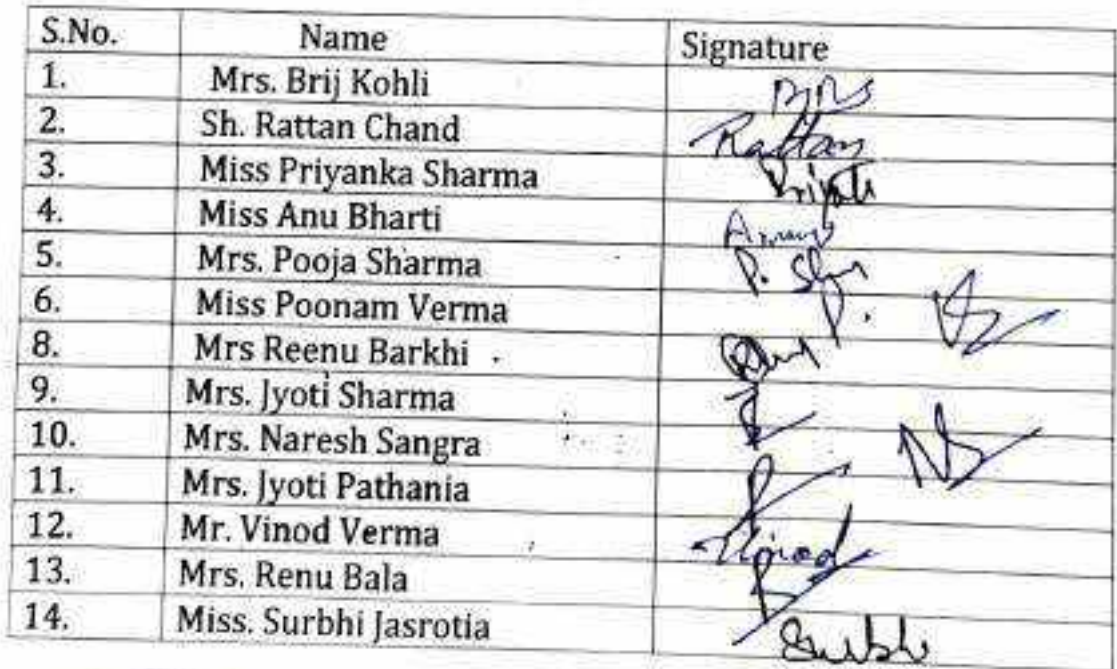 S.No. Name Signature
1. Mrs. Brij Kohli
2. Sh. Rattan Chand Rattan
3. Miss Priyanka Sharma
4. Miss Anu Bharti
5. Mrs. Pooja Sharma
6. Miss Poonam Verma
8. Mrs Reenu Barkhi .
9. Mrs. Jyoti Sharma
10. Mrs. Naresh Sangra
11. Mrs. Jyoti Pathania
12. Mr. Vinod Verma Vinod
13. Mrs. Renu Bala
14. Miss. Surbhi Jasrotia Surbhi